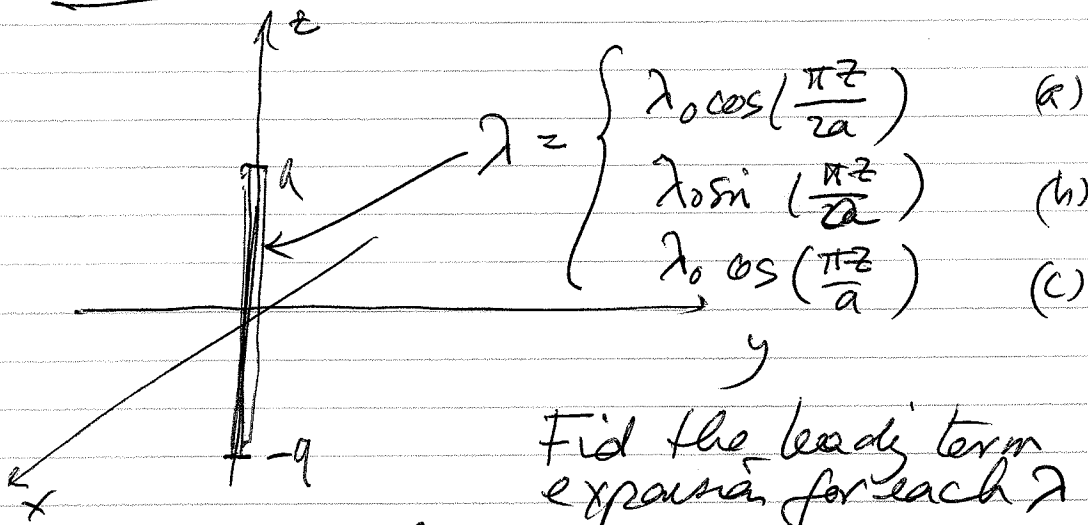 z
a
λ = { λ₀ cos(πz/2a) (a)
λ₀ sin (πz/2a) (b)
λ₀ cos (πz/a) (c)
y
-a
x
Fid the leadig term
expansion for each λ